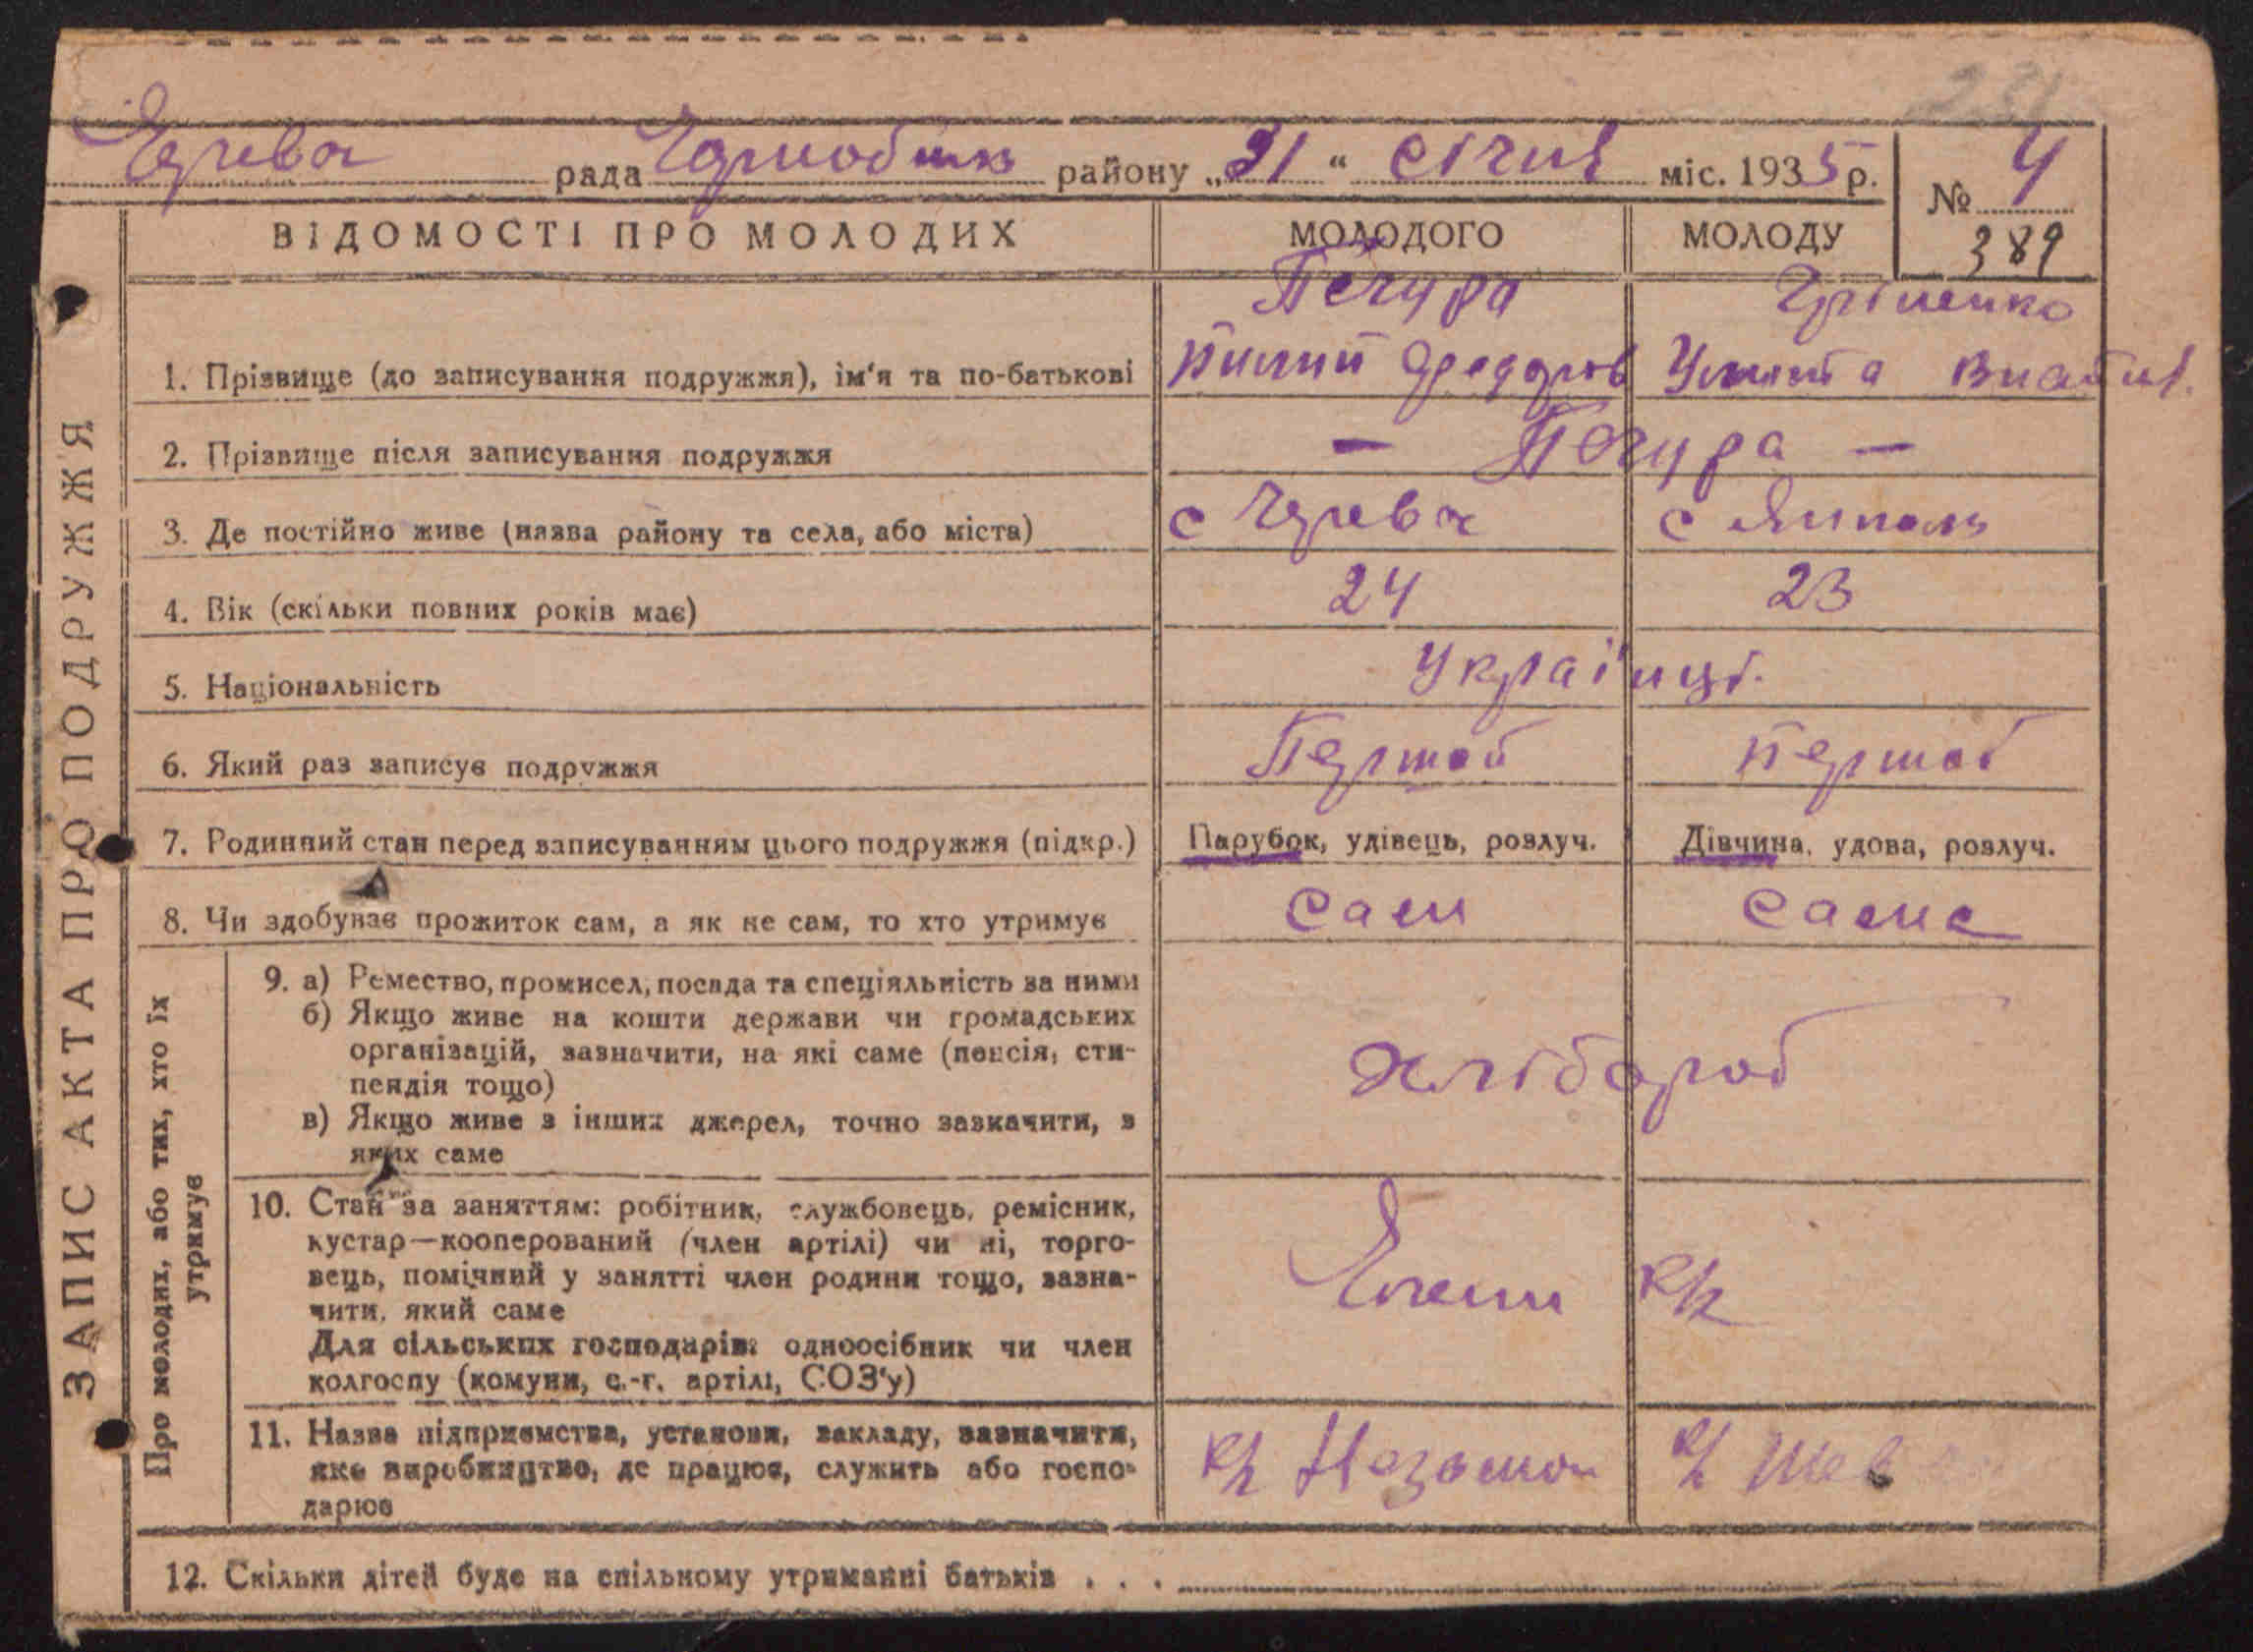 Черевач рада Чорнобильс району „31“ січня міс. 1935 р.
№ 4
389
ВІДОМОСТІ ПРО МОЛОДИХ
МОЛОДОГО
МОЛОДУ
1. Прізвище (до записування подружжя), ім'я та по-батькові
Печура
Пилип Федоров
Гріненко
2. Прізвище після записування подружжя
— Печура —
3. Де постійно живе (назва району та села, або міста)
с Черевач
с Янполь
4. Вік (скільки повних років має)
24
23
5. Національність
Українці.
6. Який раз записує подружжя
Першой
Першой
7. Родинний стан перед записуванням цього подружжя (підкр.)
Парубок, удівець, розлуч.
Дівчина, удова, розлуч.
8. Чи здобуває прожиток сам, а як не сам, то хто утримує
Сам
Саме
ЗАПИС АКТА ПРО ПОДРУЖЖЯ
Про молодих, або тих, хто їх
утримує
9. а) Ремество, промисел, посада та спеціяльність за ними
б) Якщо живе на кошти держави чи громадських
організацій, зазначити, на які саме (пенсія, сти-
пендія тощо)
в) Якщо живе з інших джерел, точно зазначити, з
яких саме
Хлібороб
10. Стан за заняттям: робітник, службовець, ремісник,
кустар—кооперований (член артілі) чи ні, торго-
вець, помічний у занятті член родини тощо, зазна-
чити, який саме
Для сільських господарів: одноосібник чи член
колгоспу (комуни, с.-г. артілі, СОЗ'у)
Члени к/г
11. Назва підприємства, установи, закладу, зазначити,
яке виробництво, де працює, служить або госпо-
дарює
к/г Незамож
к/г Шев
12. Скільки дітей буде на спільному утриманні батьків . . .